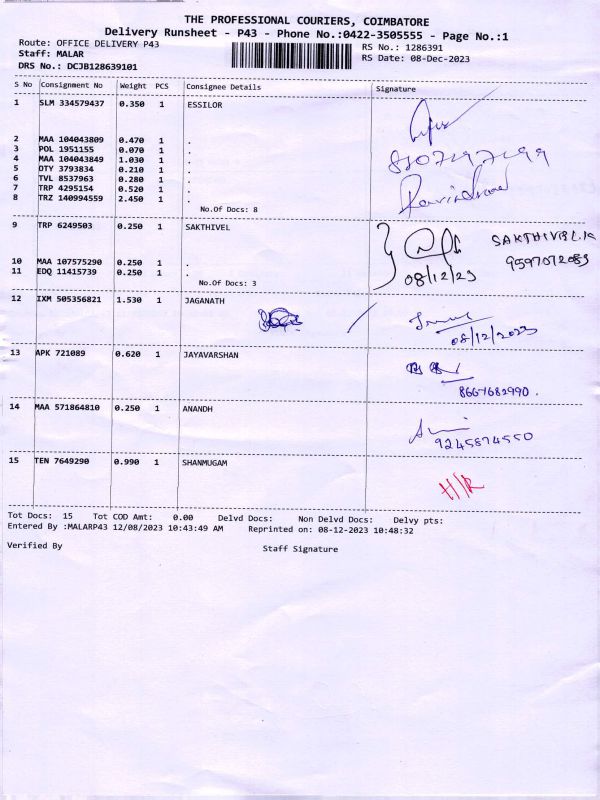 THE PROFESSIONAL COURIERS, COIMBATORE
Delivery Runsheet - P43 - Phone No.:0422-3505555 - Page No.:1
Route: OFFICE DELIVERY P43 RS No.: 1286391
Staff: MALAR RS Date: 08-Dec-2023
DRS No.: DCJB128639101
S No Consignment No Weight PCS Consignee Details Signature
1 SLM 334579437 0.350 1 ESSILOR
2 MAA 104043809 0.470 1 .
3 POL 1951155 0.070 1 .
4 MAA 104043849 1.030 1 .
5 OTY 3793834 0.210 1 .
6 TVL 8537963 0.280 1 .
7 TRP 4295154 0.520 1 .
8 TRZ 140994559 2.450 1 .
No.Of Docs: 8
9 TRP 6249503 0.250 1 SAKTHIVEL SAKTHIVEL.K
9597072083
10 MAA 107575290 0.250 1 .
11 EDQ 11415739 0.250 1 . 08/12/23
No.Of Docs: 3
12 IXM 505356821 1.530 1 JAGANATH
08/12/2023
13 APK 721089 0.620 1 JAYAVARSHAN
8667682990.
14 MAA 571864810 0.250 1 ANANDH
9245874550
15 TEN 7649290 0.990 1 SHANMUGAM
H/R
Tot Docs: 15 Tot COD Amt: 0.00 Delvd Docs: Non Delvd Docs: Delvy pts:
Entered By :MALARP43 12/08/2023 10:43:49 AM Reprinted on: 08-12-2023 10:48:32
Verified By Staff Signature